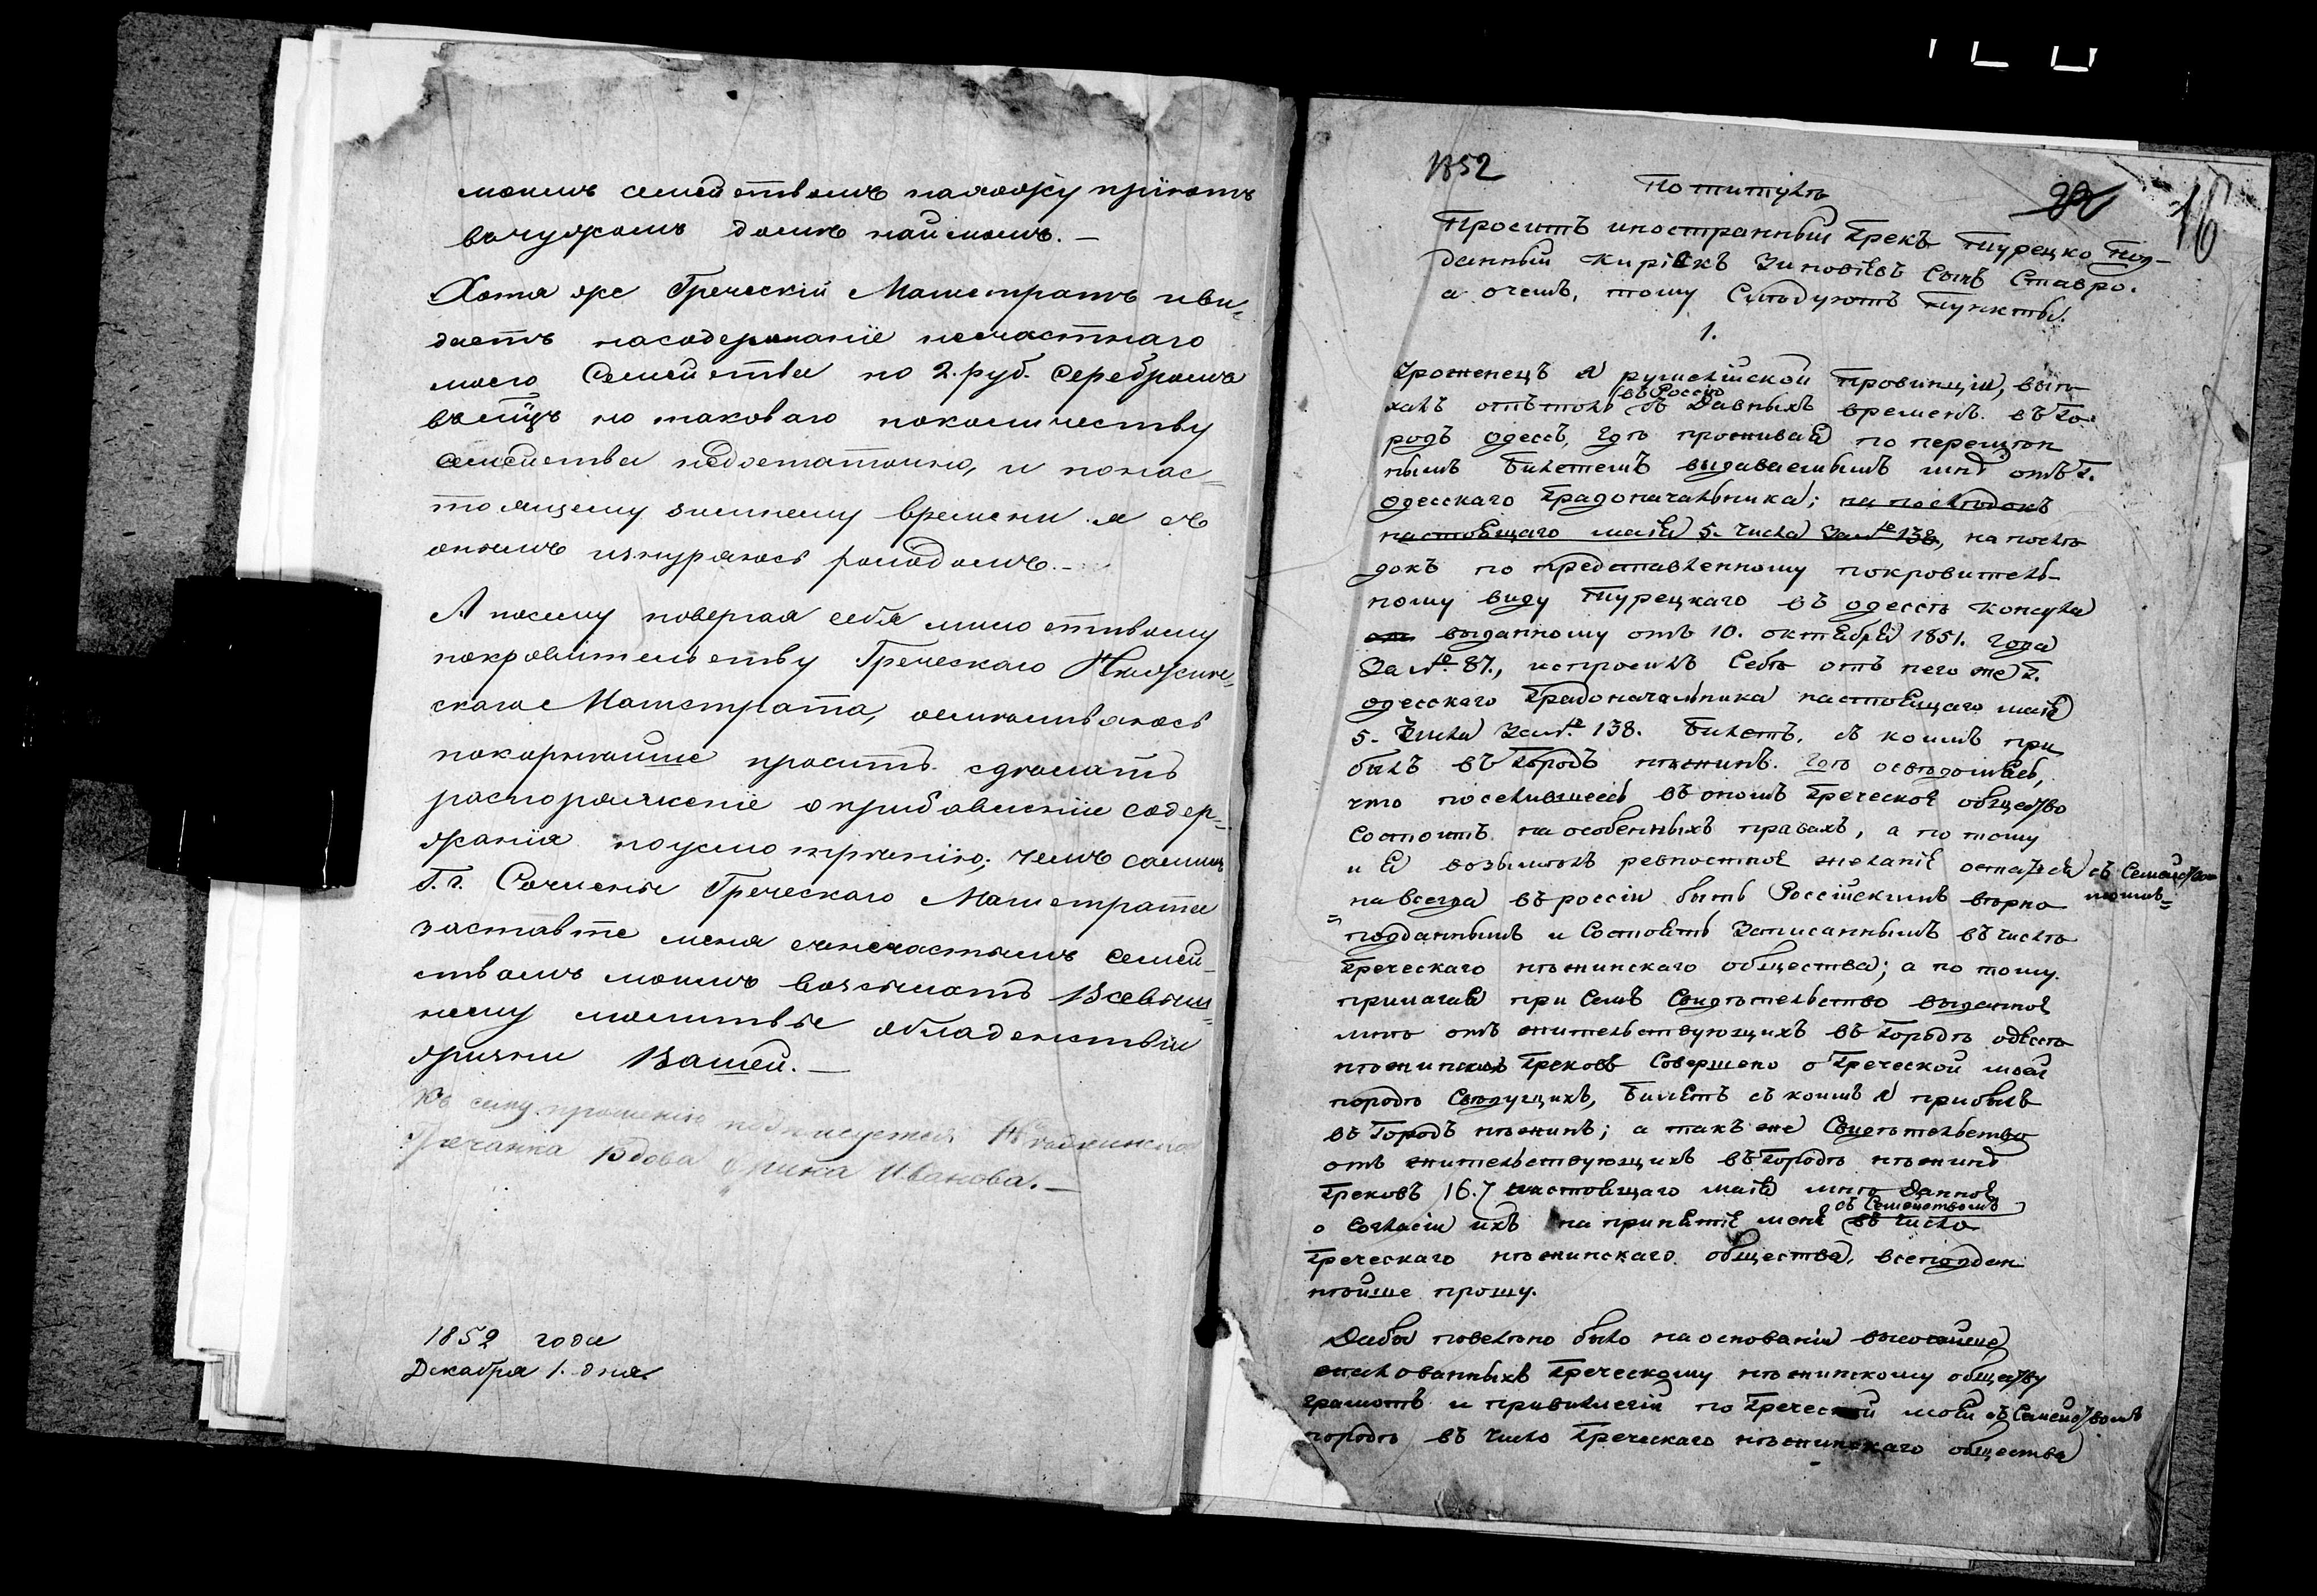 моимъ семействомъ нахожу пріютъ
въчужомъ домѣ наймомъ. —
Хотя же Греческій Магистратъ иви-
даетъ насодержаніе несчастнаго
моего Семейства по 2. руб. Серебромъ
вмѣцъ но таковаго поколичеству
семейства недостаточно, и понас-
тоящему зимнему времени я съ
онымъ изнуряюсь голодомъ. —
А посему повергая себя милостивому
покровительству Греческаго Нѣжин-
скаго Магистрата, осмѣливаюсь
покорнѣйше просить сдѣлать
распоряженіе оприбавленіи содер-
жанія поусмотрѣнію; чемъ самимъ
Г. г. Сочлены Греческаго Магистрата
заставте меня снесчастнымъ семей-
ствомъ моимъ возсылать Всевыш-
нему молитвы обладенствіи
жизни Вашей. —
Къ сему прошенію подписуется Нѣжинская
Гречанка Вдова Ирина Иванова. —
1852 года
Декабря 1. дня
1852
По титулѣ
22
16
Проситъ иностранный Грекъ Турецко под-
данный Киріакъ Зиновіевъ Сынъ Ставро.
а очемъ, тому Слѣдуютъ пункты.
1.
Уроженецъ я румелійской провинціи, выѣ-
халъ отътоль въ Россію съ Давныхъ временъ въ го-
родъ одессъ, гдѣ проживая по перемѣн
нымъ билетемъ выдаваемымъ мнѣ отъ Г.
одесскаго Градоначальника; на послѣдокъ
настоящаго маія 5. числа За № 138, на послѣ
докъ по представленному покровитель-
ному виду Турецкаго въ одессѣ консула
выданному отъ 10. октября 1851. года
За № 87., испросилъ Себѣ отъ него же Г.
одесскаго Градоначальника настоящаго маія
5. Числа За № 138. билетъ, съ коимъ при
былъ въ Городъ нѣжинъ. гдѣ освѣдомясь,
что поселившееся въ ономъ Греческое общество
состоитъ на особенныхъ правахъ, а по тому
и я возымѣлъ ревностное желаніе остаться съ Семейством
моимъ=
=навсегда въ россіи быть Россійскимъ вѣрно
подданнымъ и Состоять Записаннымъ въ числѣ
Греческаго нѣжинскаго общества; а по тому.
прилагая при Семъ Свидѣтельство выданное
мнѣ отъ жительствующихъ въ Городѣ одессѣ
нѣжинскихъ Грековъ Совершено о Греческой моей
породѣ Свѣдущихъ, билетъ съ коимъ я прибылъ
въ Городъ нѣжинъ; а такъ же Свидѣтельство
отъ жительствующихъ въ Городѣ нѣжинѣ
Грековъ 16. настоящаго маія мнѣ Данное
о Согласіи ихъ на принятіе меня съ Семействомъ въ число
Греческаго нѣжинскаго общества, всеподдан
нѣйше прошу.
Дабы повелѣно было на основаніи высочайше
жалованныхъ Греческому нѣжинскому обществу
грамотъ и привилегій по Греческой моей съ Семействомъ
породѣ въ число Греческаго нѣжинскаго общества